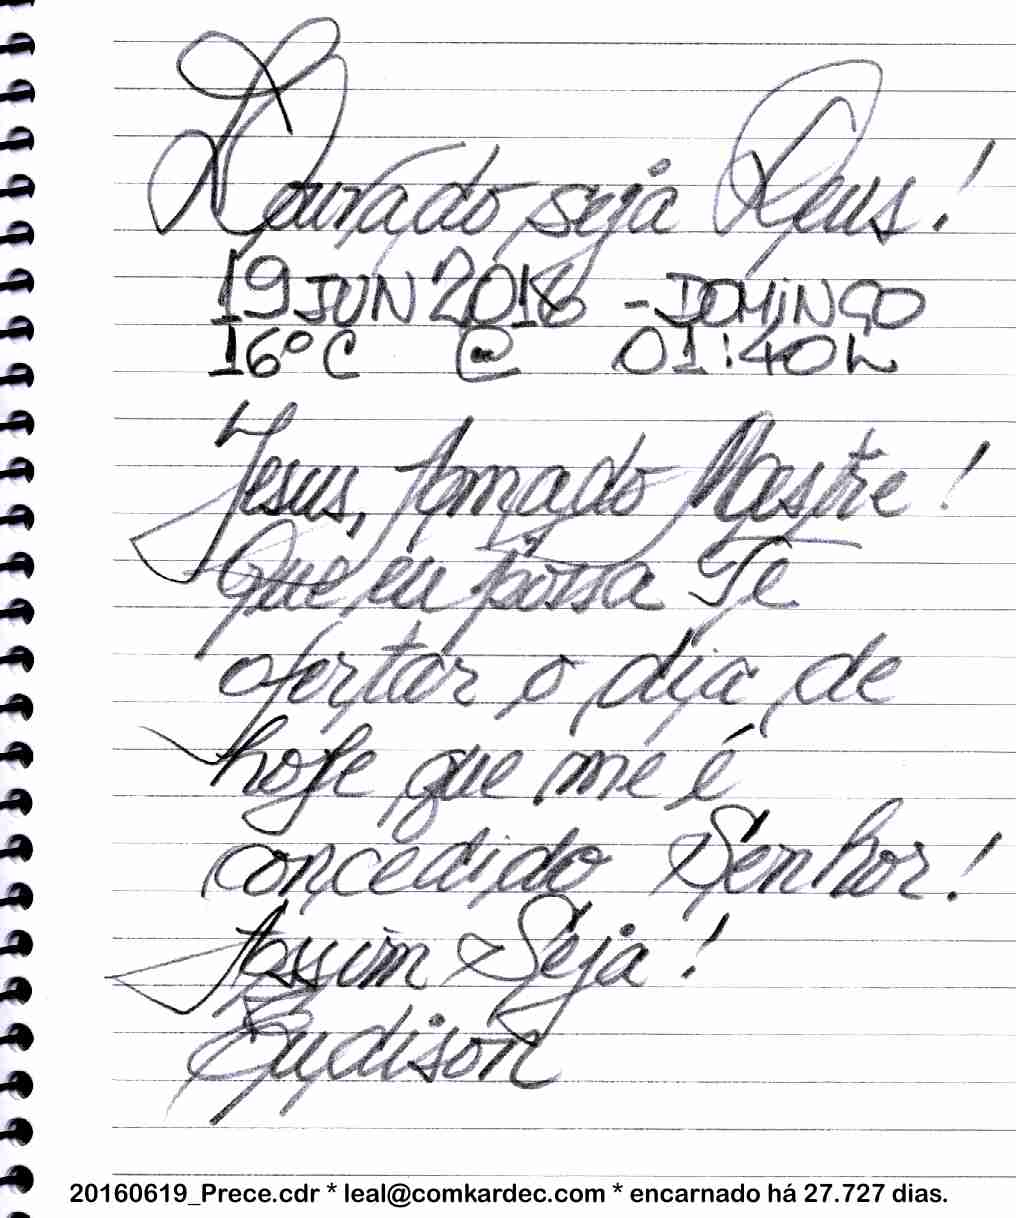 Louvado seja Deus!
19 JUN 2016 - DOMINGO
16°C @ 01:40h
Jesus, Amado Mestre!
Que eu possa Te
ofertar o dia de
hoje que me é
concedido Senhor!
Assim Seja!
Eydison
20160619_Prece.cdr * leal@comkardec.com * encarnado há 27.727 dias.